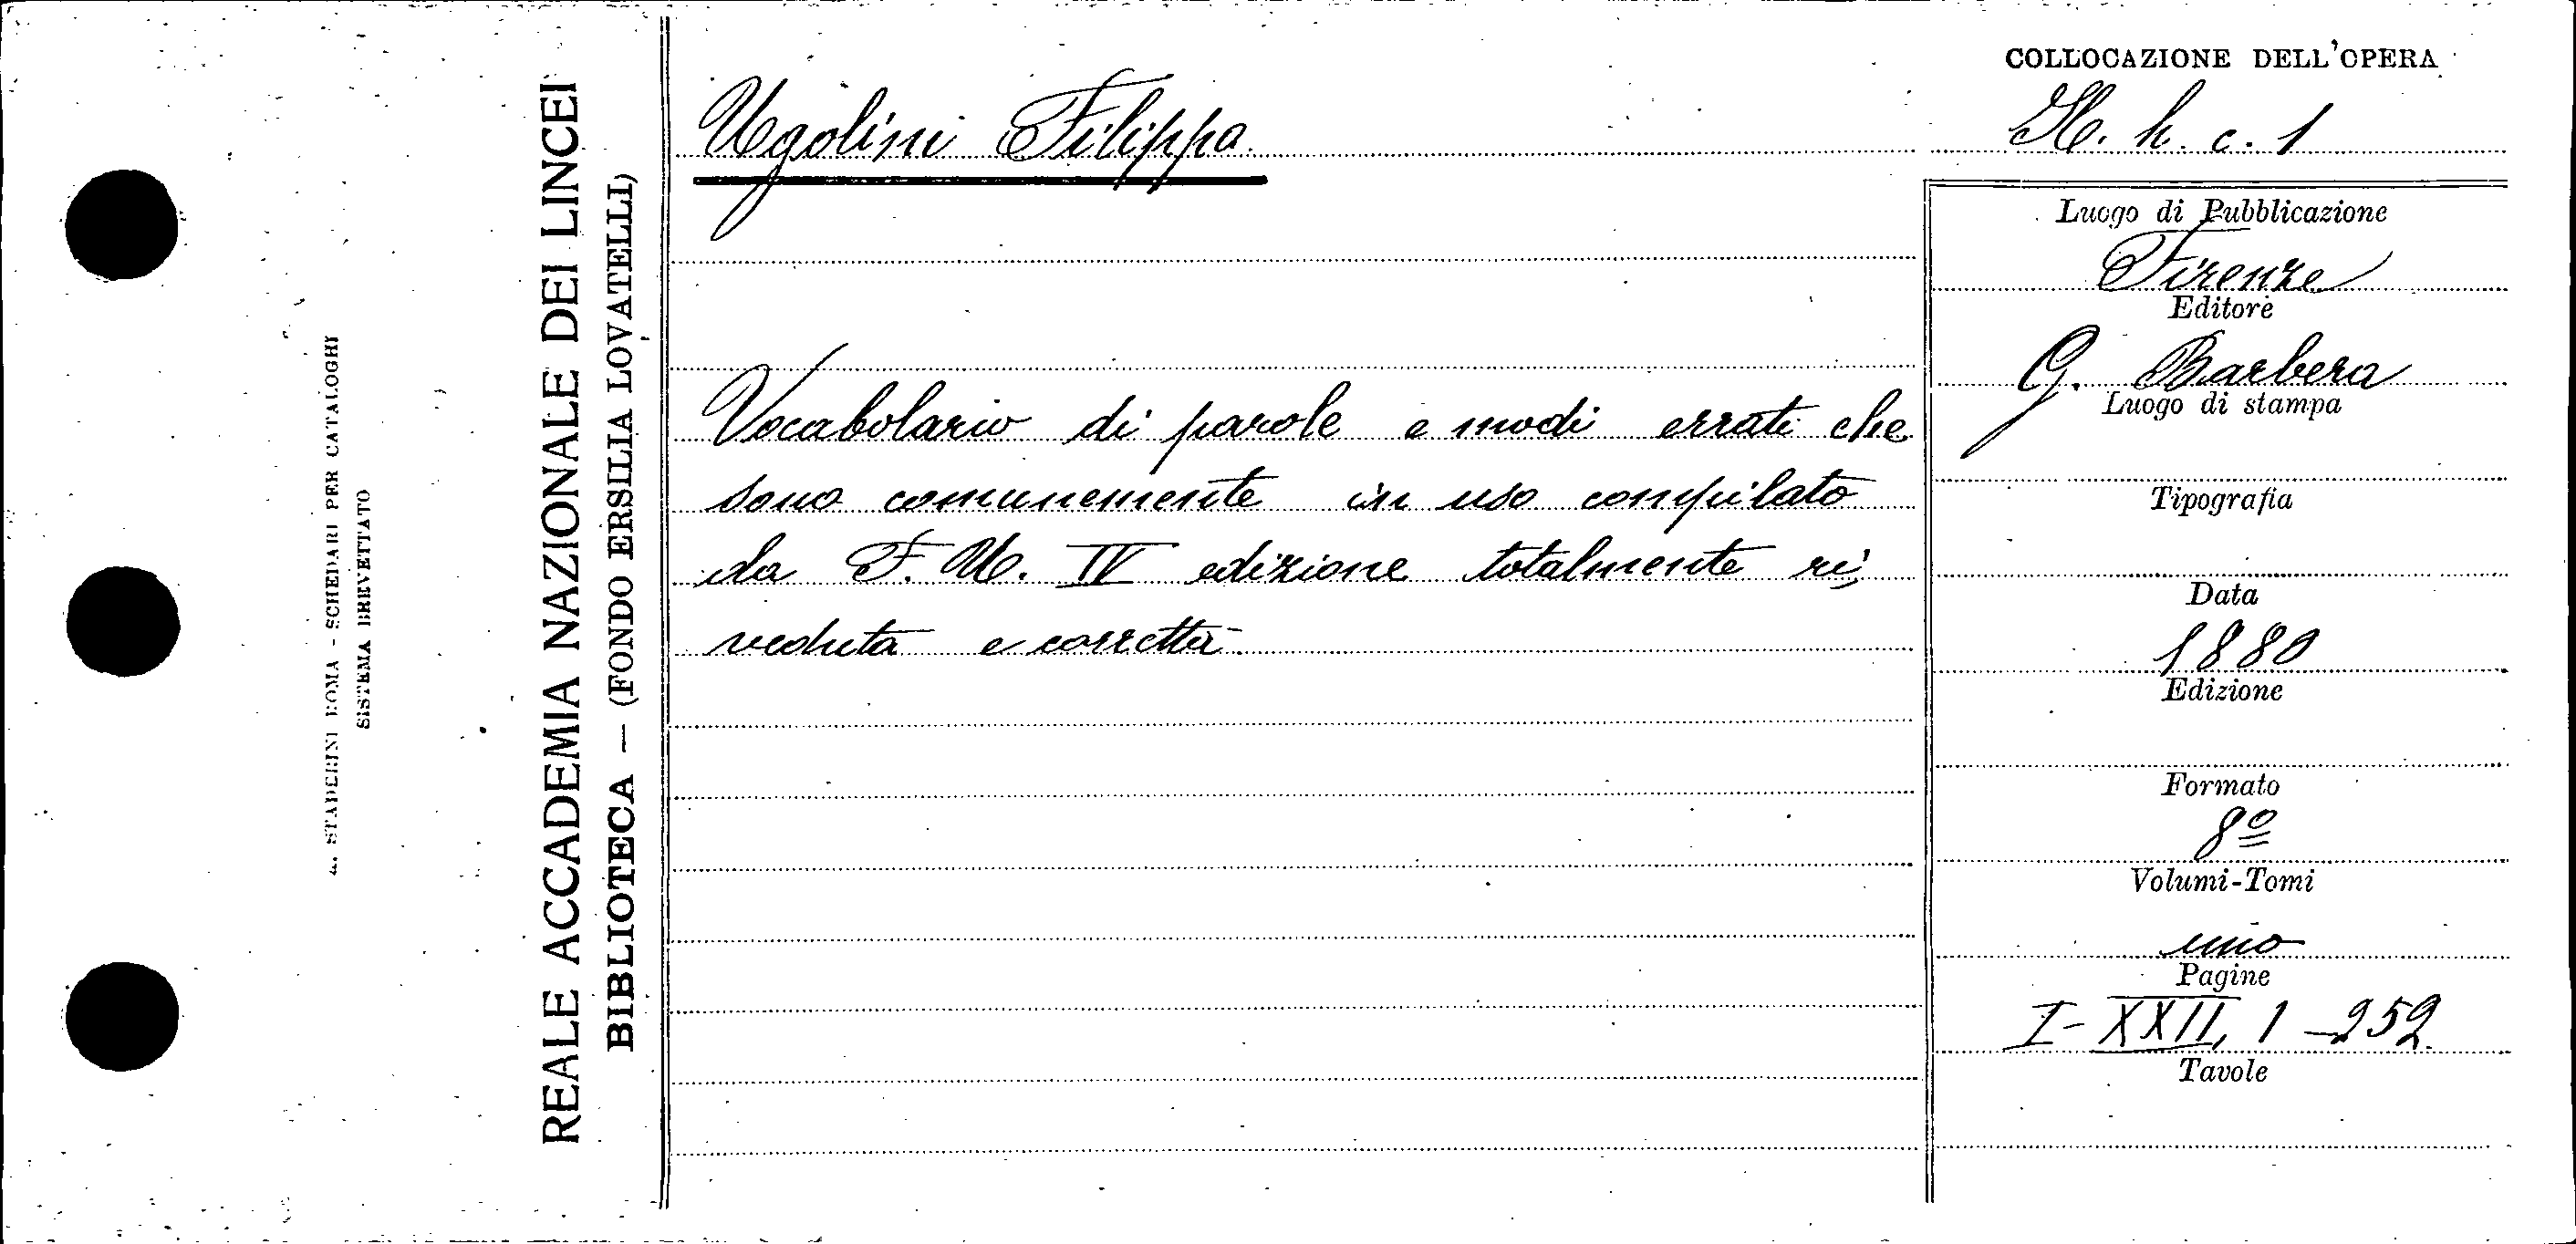 COLLOCAZIONE DELL'OPERA
Ugolini Filippa
H. h. c. 1
Luogo di Pubblicazione
Firenze
Editore
G. Barbera
Luogo di stampa
Vocabolario di parole e modi errati che
sono comunemente in uso compilato
da F. U. IV edizione totalmente ri,
veduta e corretta.
Tipografia
Data
1880
Edizione
Formato
8º
Volumi-Tomi
uno
Pagine
I-XXII, 1-252
Tavole
REALE ACCADEMIA NAZIONALE DEI LINCEI
BIBLIOTECA — (FONDO ERSILIA LOVATELLI)
STADERINI ROMA - SCHEDARI PER CATALOGHI
SISTEMA BREVETTATO